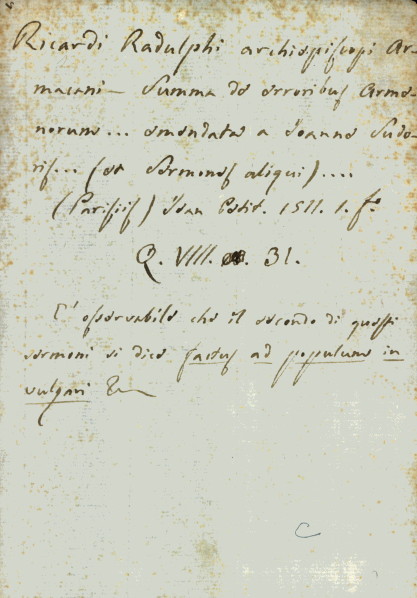 Ricardi Radulphi archiepiscopi Ar-
macani — Summa de erroribus Arme-
norum... emendata a Joanne Sudo-
ris... (et Sermones aliqui)....
(Parisiis) Jean Petit. 1511. 1. fo
Q. VIII. . 31.
E' osservabile che il secondo di questi
sermoni si dice factus ad populum in
vulgari
C